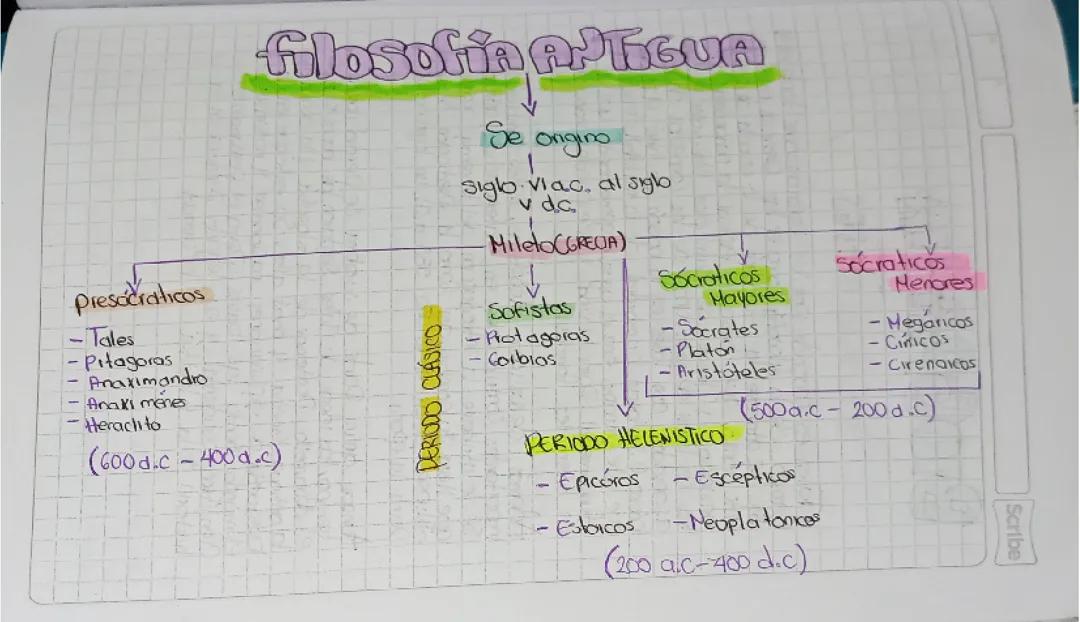 filosofía ANTIGUA
Se origino
siglo VI a.c. al siglo
V d.c.
Mileto (GRECIA)
Presócraticos
- Tales
- Pitagoras
- Anaximandro
- Anaximenes
- Heraclito
(600 d.c - 400 d.c)
PERIODO CLÁSICO
Sofistas
- Protagoras
- Gorbias
Sócraticos
Mayores
- Sócrates
- Platón
- Aristóteles
Sócraticos
Menores
- Megáricos
- Cínicos
- Cirenaicos
(500 a.c - 200 d.c)
PERIODO HELENISTICO
- Epicúros - Escépticos
- Estoicos - Neoplatonicos
(200 a.c - 400 d.c)
Scribe